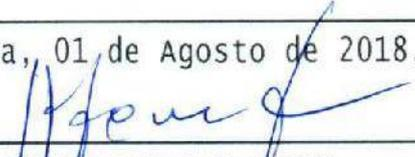 a, 01 de Agosto de 2018.